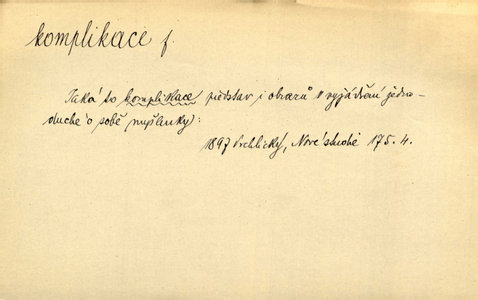 komplikace f.
Taká to komplikace představ i obrazů k vyjádření jedno-
duché o sobě myšlenky:
1897 Vrchlický, Nové studie 175. 4.